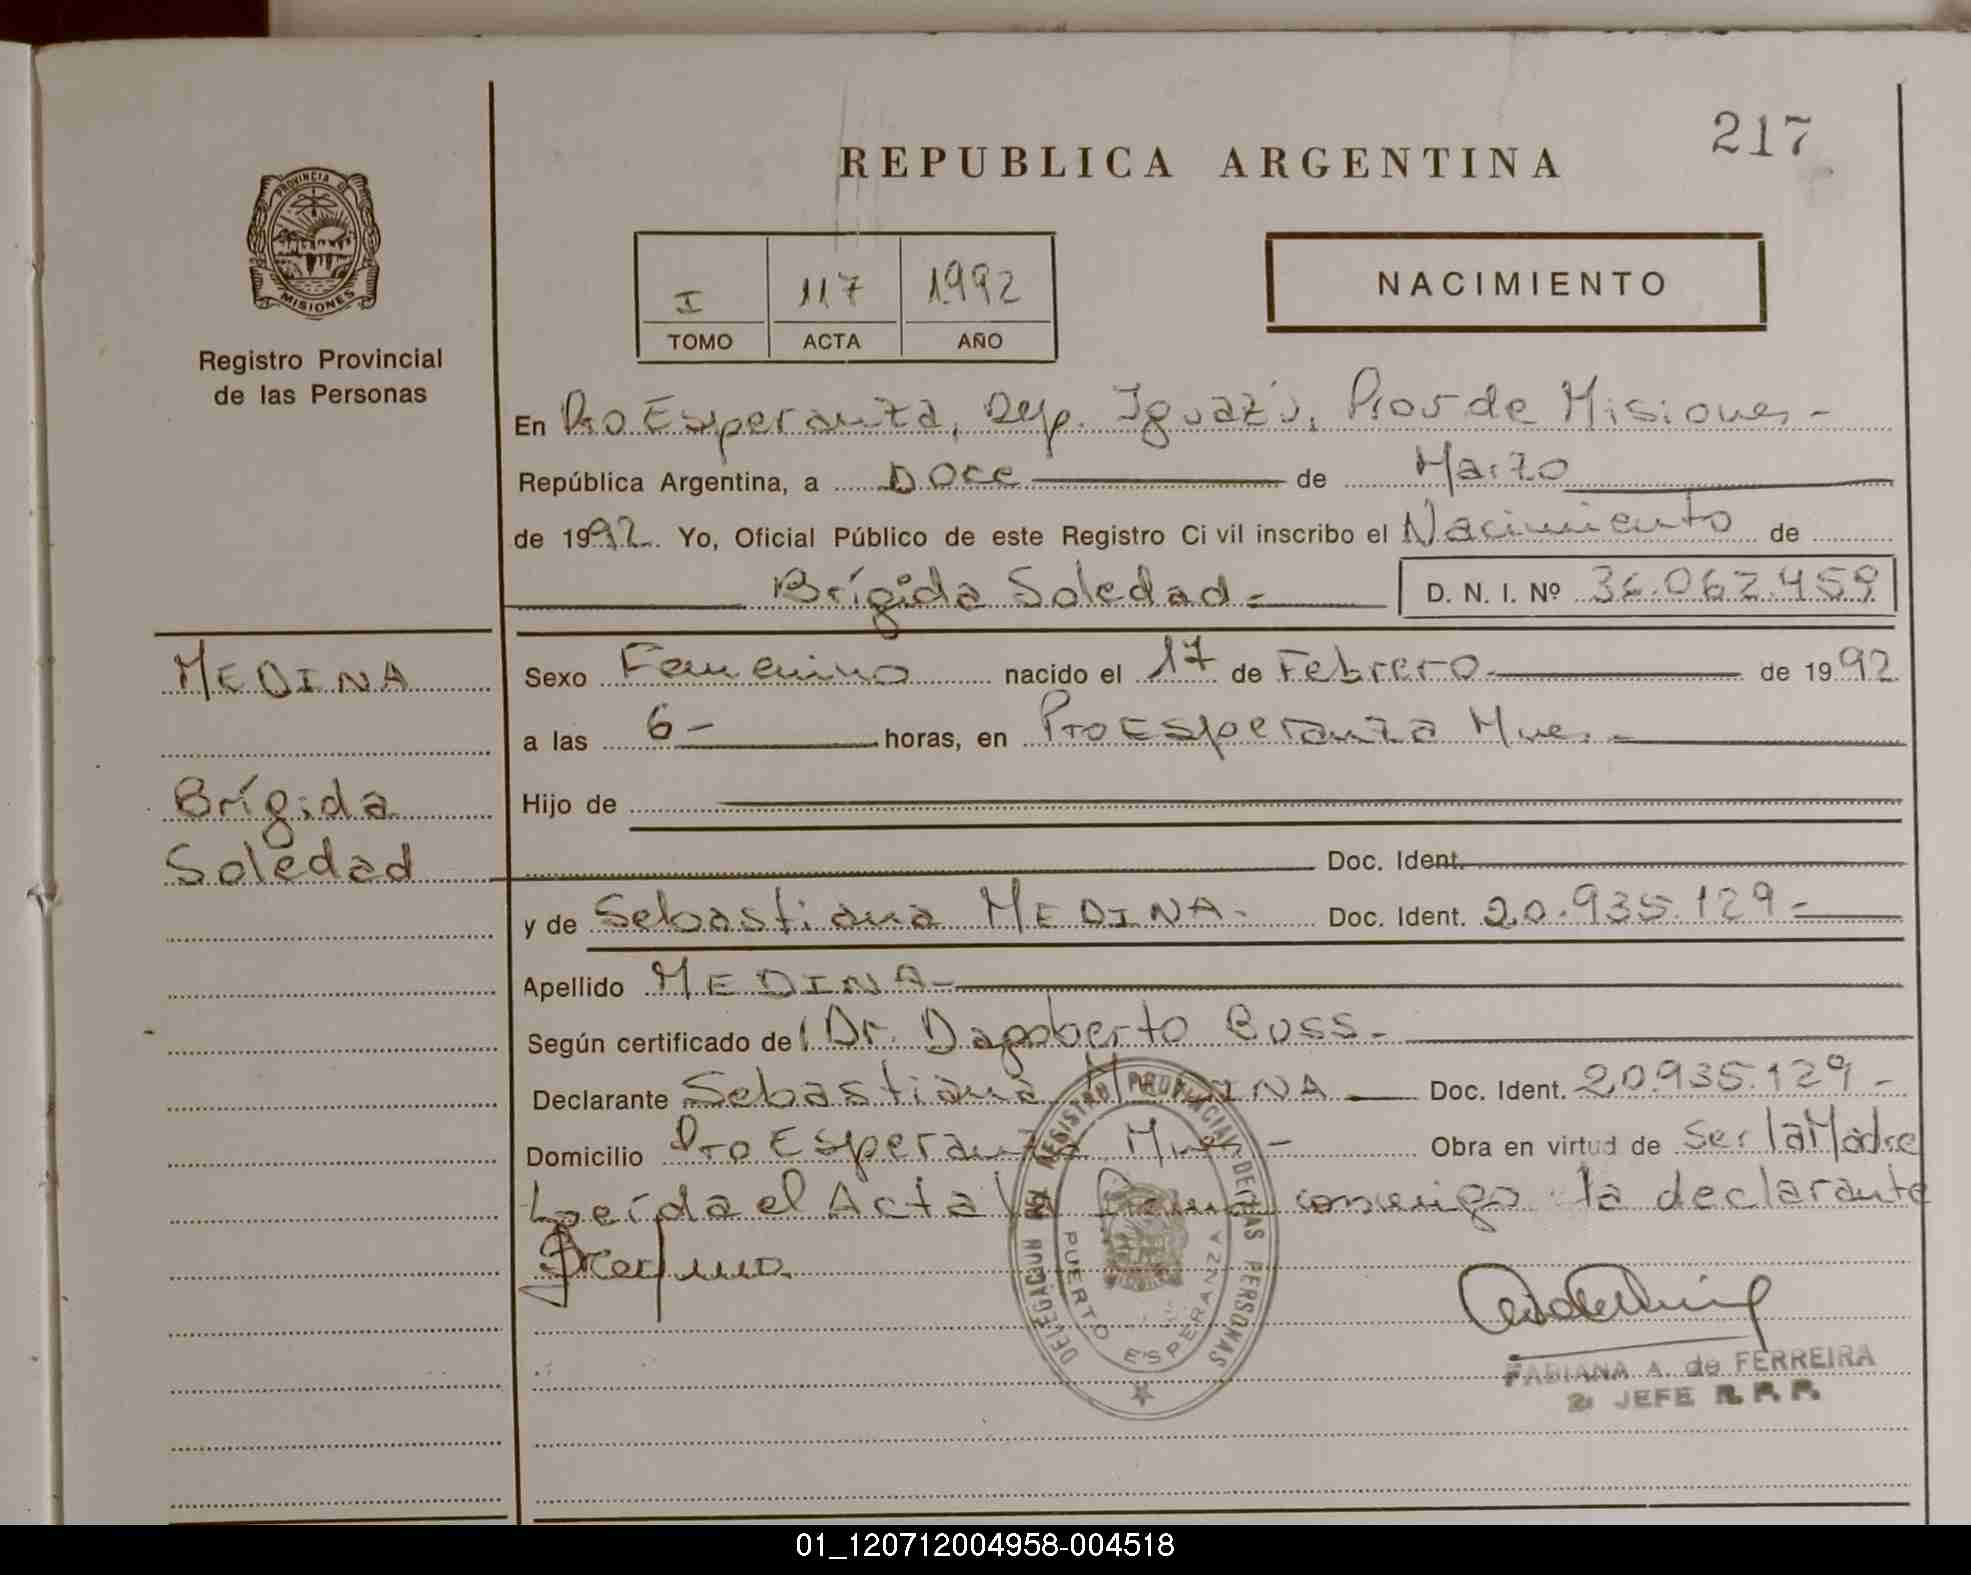 217
REPUBLICA ARGENTINA
PROVINCIA DE
MISIONES
Registro Provincial
de las Personas
I 117 1992
TOMO ACTA AÑO
NACIMIENTO
En Pto Esperanza, Dep. Iguazú, Prov de Misiones -
República Argentina, a Doce de Marzo
de 1992. Yo, Oficial Público de este Registro Ci vil inscribo el Nacimiento de
Brígida Soledad - D. N. I. Nº 36.062.459
MEDINA
Brígida
Soledad
Sexo Femenino nacido el 17 de Febrero de 1992
a las 6 - horas, en Pto Esperanza Mnes. -
Hijo de
Doc. Ident.
y de Sebastiana MEDINA - Doc. Ident. 20.935.129 -
Apellido MEDINA -
Según certificado de Dr. Dagoberto Buss -
Declarante Sebastiana MEDINA Doc. Ident. 20.935.129 -
Domicilio Pto Esperanza Mnes - Obra en virtud de Ser la Madre
Leída el Acta la conmigo la declarante
DELEGACION REGISTRO PROVINCIAL DE LAS PERSONAS
PUERTO ESPERANZA
FABIANA A. de FERREIRA
2 JEFE R. P. P.
01_120712004958-004518